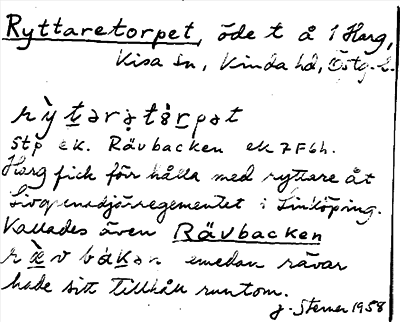 Ryttaretorpet, öde t å 1 Harg,
Kisa sn, Kinda hd, Östg. l.
rỳtərətòrpət
stp ek. Rävbacken ek 7F6h.
Harg fick förhålla med ryttare åt
Livgrenadjärregementet i Linköping.
Kallades även Rävbacken
ræ̀vbakən emedan rävar
hade sitt tillhåll runtom.
J. Sterner 1958